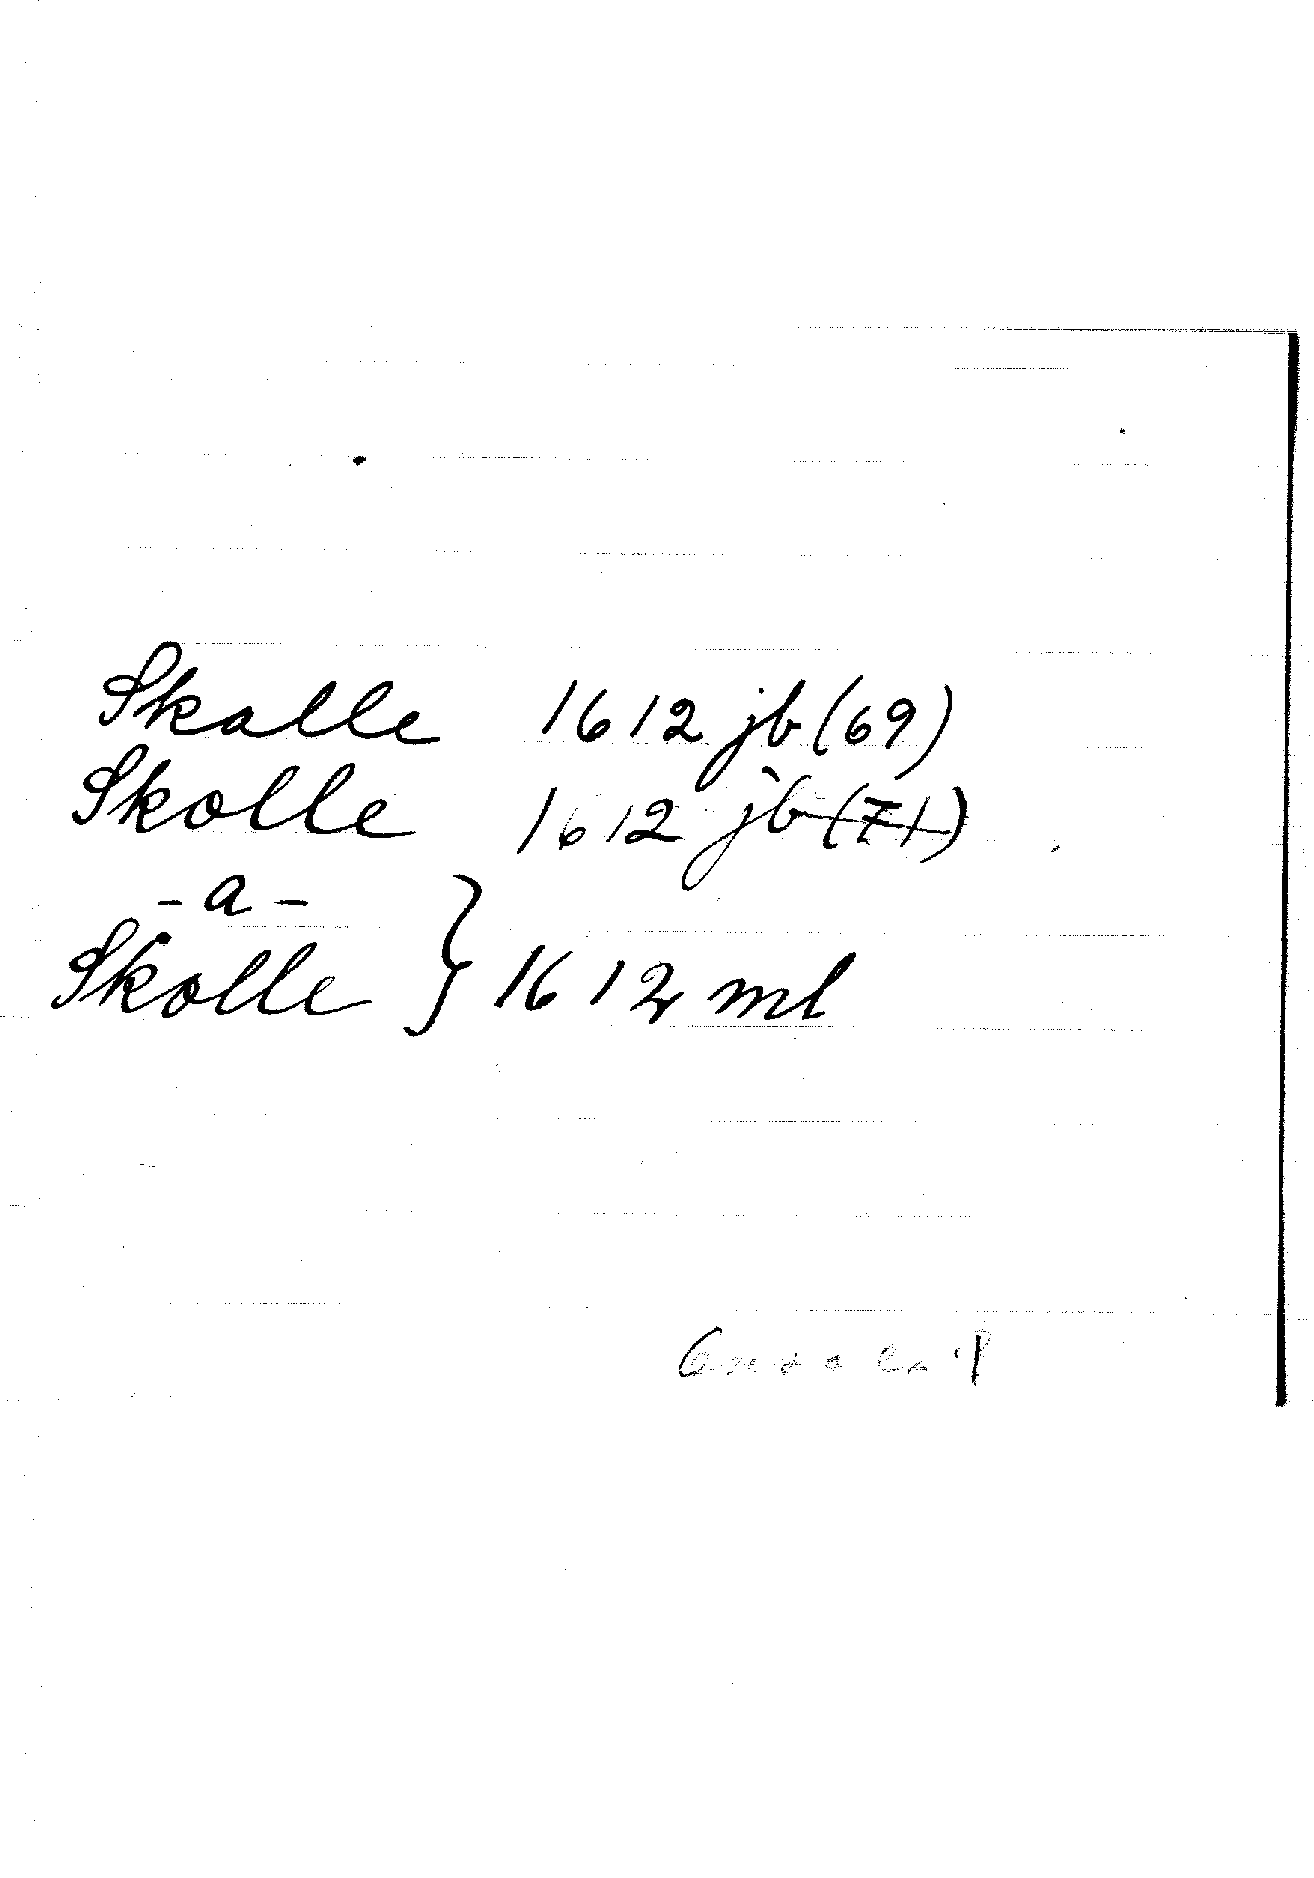 Skalle 1612 jb (69)
Skolle 1612 jb (71)
- a -
Skolle } 1612 ml